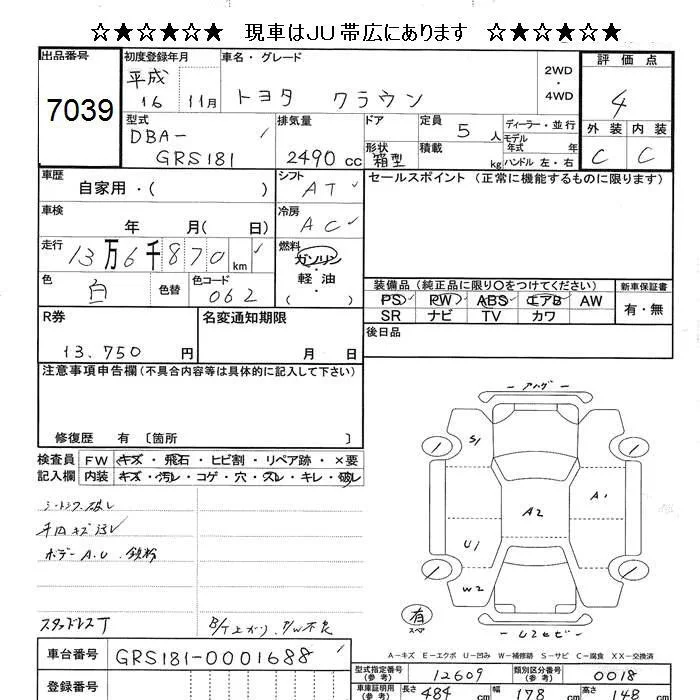 ☆★☆★☆★ 現車はJU帯広にあります ☆★☆★☆★
出品番号 初度登録年月 車名・グレード 2WD・4WD 評価点
7039 平成16 11月 トヨタ クラウン 4
型式 排気量 ドア 定員 ディーラー・並行 外装 内装
DBA- GRS181 2490cc 5人 モデル年式 年 C C
形状 箱型 積載 kg ハンドル 左・右
車歴 自家用・( ) シフト AT セールスポイント(正常に機能するものに限ります)
車検 年 月( 日) 冷房 AC
走行 13万6千870km 燃料 ガソリン・軽油・( )
色 白 色替 色コード 062
装備品(純正品に限り○をつけてください) 新車保証書
PS PW ABS エアB AW 有・無
SR ナビ TV カワ
R券 名変通知期限 後日品
13.750円 月 日
注意事項申告欄(不具合内容等は具体的に記入して下さい)
修復歴 有 〔箇所 〕
検査員 FW キズ・飛石・ヒビ割・リペア跡・×要
記入欄 内装 キズ・汚レ・コゲ・穴・スレ・キレ・破レ
ボデー A.U 鉄粉
スタッドレスT
S1
A1
A2
U1
W2
有
スペア
A-キズ E-エクボ U-凹み W-補修跡 S-サビ C-腐食 XX-交換済
車台番号 GRS181-0001688
登録番号
型式指定番号(参考) 12609 類別区分番号(参考) 0018
車庫証明用(参考) 長さ 484cm 幅 178cm 高さ 148cm